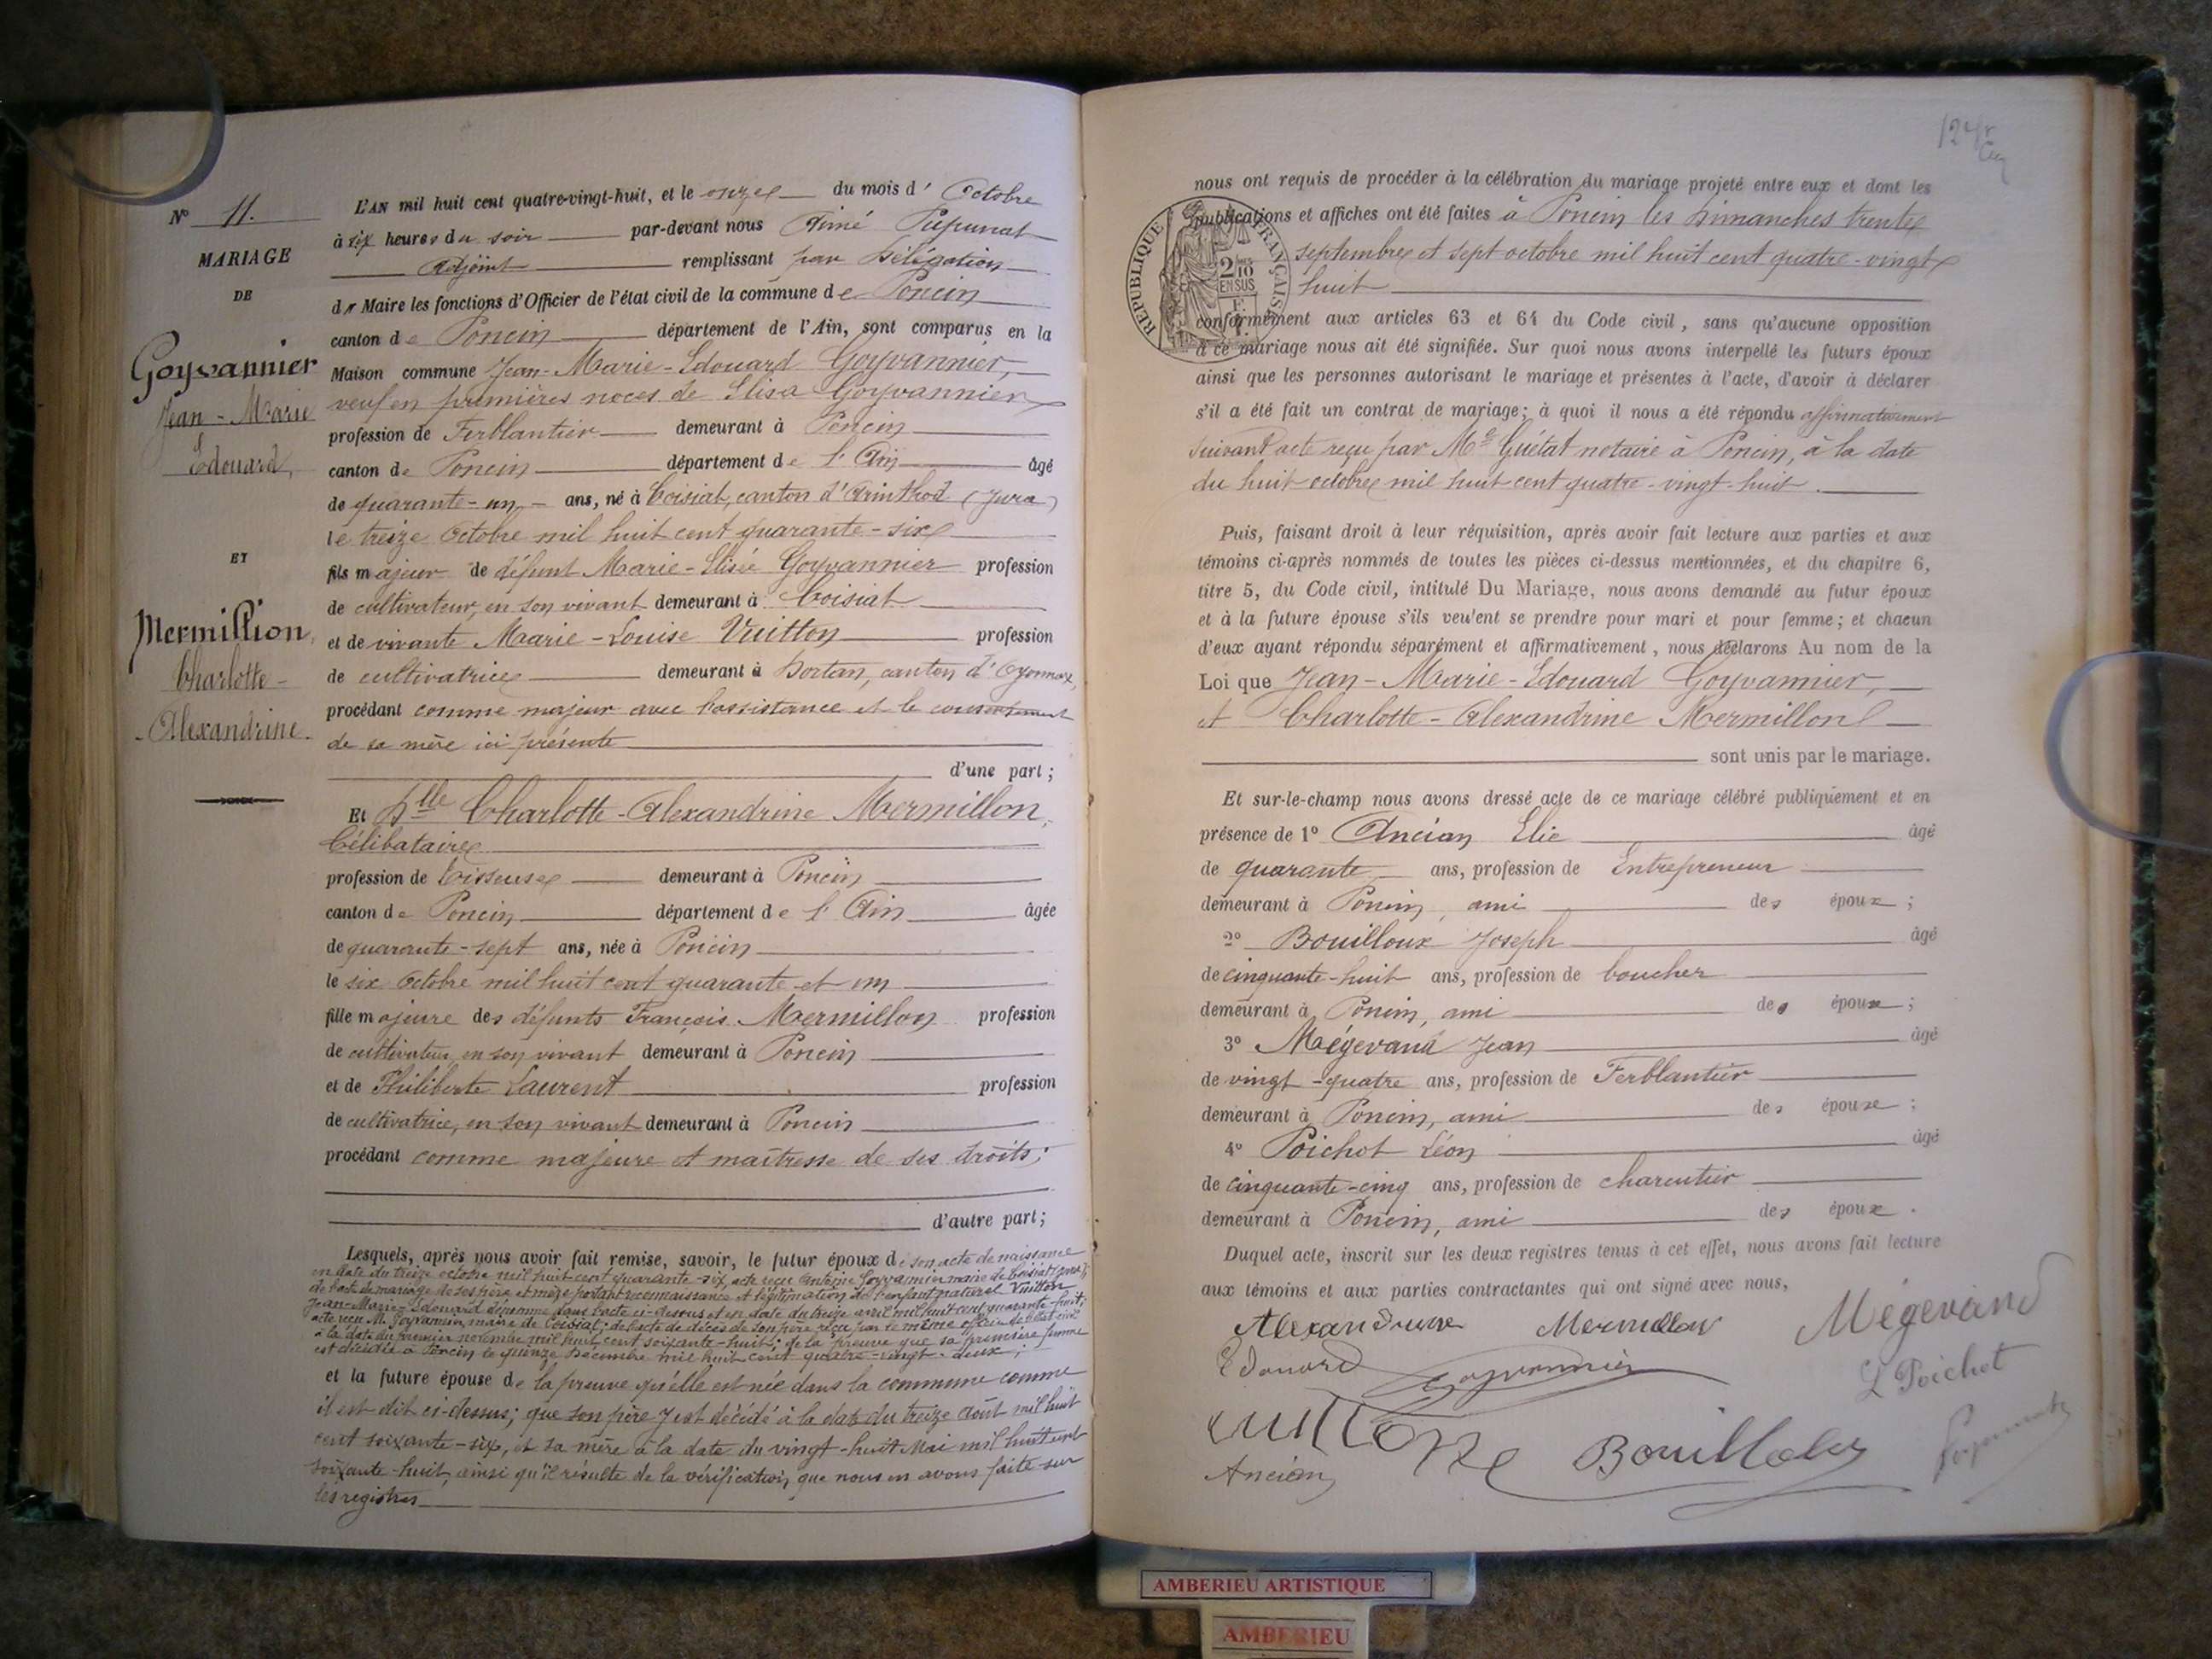 N° 11.
MARIAGE
DE
Goyvannier
Jean-Marie
Edouard,
ET
Mermillion,
Charlotte-
-Alexandrine-
L'AN mil huit cent quatre-vingt-huit, et le onze du mois d' Octobre
à six heures du soir par-devant nous Aimé
Adjoint remplissant par Délégation
du Maire les fonctions d'Officier de l'état civil de la commune de Poncin
canton de Poncin département de l'Ain, sont comparus en la
Maison commune Jean-Marie-Edouard Goyvannier,
veuf en premières noces de Elisa Goyvannier
profession de Ferblantier demeurant à Poncin
canton de Poncin département de l'Ain âgé
de quarante-un ans, né à Coisiat, canton d'Arinthod (Jura)
le treize Octobre mil huit cent quarante-six
fils majeur de défunt Marie-Elisée Goyvannier profession
de cultivateur, en son vivant demeurant à Coisiat
et de vivante Marie-Louise Vuitton profession
de cultivatrice demeurant à Dortan, canton d'Oyonnax,
procédant comme majeur avec l'assistance et le consentement
de sa mère ici présente
d'une part ;
Et Dlle Charlotte-Alexandrine Mermillon,
Célibataire
profession de Tisseuse demeurant à Poncin
canton de Poncin département de l'Ain âgée
de quarante-sept ans, née à Poncin
le six Octobre mil huit cent quarante et un
fille majeure des défunts François Mermillon profession
de cultivateur, en son vivant demeurant à Poncin
et de Philiberte Laurent profession
de cultivatrice, en son vivant demeurant à Poncin
procédant comme majeure et maîtresse de ses droits;
d'autre part ;
Lesquels, après nous avoir fait remise, savoir, le futur époux de son acte de naissance
en date du treize octobre mil huit cent quarante-six, acte reçu Antoine Goyvannier maire de Coisiat (Jura);
de l'acte de mariage de ses père et mère portant reconnaissance et légitimation de l'enfant naturel Vuitton
Jean-Marie-Edouard dénommé dans l'acte ci-dessus et en date du treize avril mil huit cent quarante-huit;
acte reçu M. Goyvannier, maire de Coisiat; de l'acte de décès de son père reçu par le même officier de l'état-civil
à la date du premier novembre mil huit cent soixante-huit; de la preuve que sa première femme
est décédée à Poncin le quinze Décembre mil huit cent quatre-vingt-deux;
et la future épouse de la preuve qu'elle est née dans la commune comme
il est dit ci-dessus; que son père y est décédé à la date du treize août mil huit
cent soixante-six, et sa mère à la date du vingt-huit Mai mil huit cent
soixante-huit, ainsi qu'il résulte de la vérification que nous en avons faite sur
les registres
nous ont requis de procéder à la célébration du mariage projeté entre eux et dont les
publications et affiches ont été faites à Poncin les Dimanches trente
septembre et sept octobre mil huit cent quatre-vingt
huit
RÉPUBLIQUE FRANÇAISE
2/10 EN SUS
conformément aux articles 63 et 64 du Code civil, sans qu'aucune opposition
à ce mariage nous ait été signifiée. Sur quoi nous avons interpellé les futurs époux
ainsi que les personnes autorisant le mariage et présentes à l'acte, d'avoir à déclarer
s'il a été fait un contrat de mariage; à quoi il nous a été répondu affirmativement
suivant acte reçu par Me Guétat notaire à Poncin, à la date
du huit octobre mil huit cent quatre-vingt-huit.
Puis, faisant droit à leur réquisition, après avoir fait lecture aux parties et aux
témoins ci-après nommés de toutes les pièces ci-dessus mentionnées, et du chapitre 6,
titre 5, du Code civil, intitulé Du Mariage, nous avons demandé au futur époux
et à la future épouse s'ils veulent se prendre pour mari et pour femme; et chacun
d'eux ayant répondu séparément et affirmativement, nous déclarons Au nom de la
Loi que Jean-Marie-Edouard Goyvannier,
et Charlotte-Alexandrine Mermillon
sont unis par le mariage.
Et sur-le-champ nous avons dressé acte de ce mariage célébré publiquement et en
présence de 1° Ancian Elie âgé
de quarante ans, profession de Entrepreneur
demeurant à Poncin, ami des époux ;
2° Bouilloux Joseph âgé
de cinquante-huit ans, profession de boucher
demeurant à Poncin, ami des époux ;
3° Mégevand Jean âgé
de vingt-quatre ans, profession de Ferblantier
demeurant à Poncin, ami des époux ;
4° Poichot Léon âgé
de cinquante-cinq ans, profession de charcutier
demeurant à Poncin, ami des époux .
Duquel acte, inscrit sur les deux registres tenus à cet effet, nous avons fait lecture
aux témoins et aux parties contractantes qui ont signé avec nous,
Alexandrine Mermillon Mégevand
Edouard Goyvannier L Poichot
Bouilloux
Ancian
AMBERIEU ARTISTIQUE
AMBERIEU